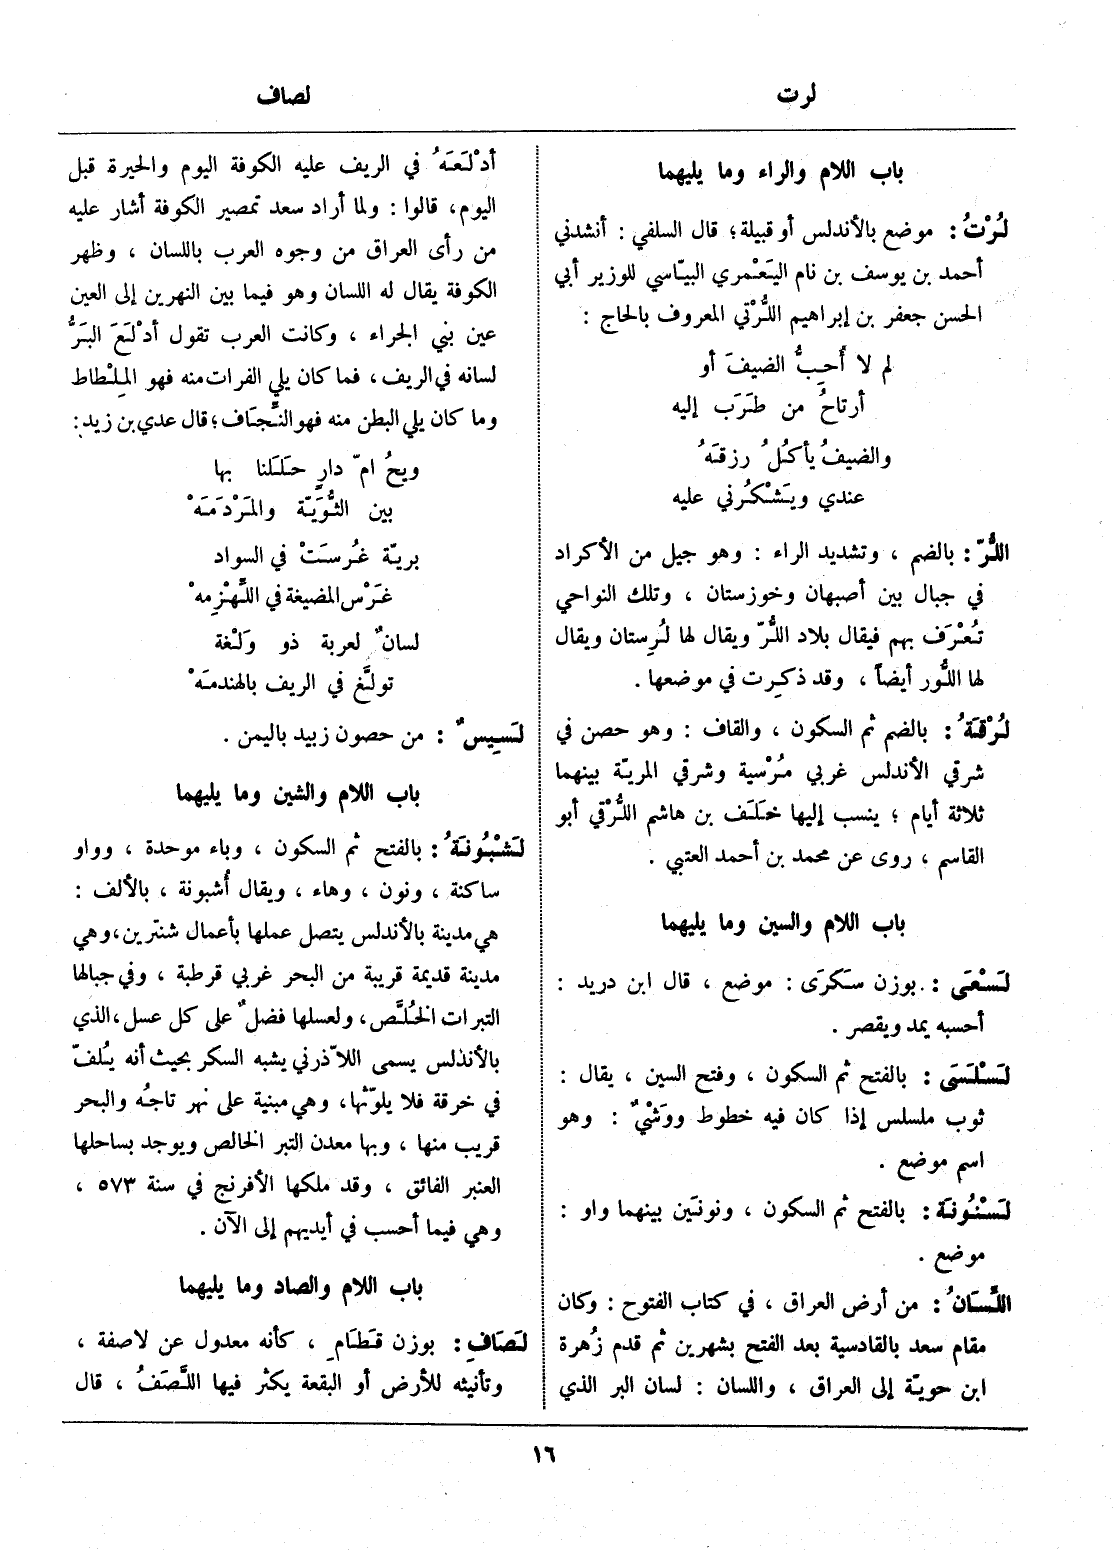 لرت
لصاف
باب اللام والراء وما يليهما
لُرْتُ : موضع بالأندلس أو قبيلة ؛ قال السلفي : أنشدني
أحمد بن يوسف بن نام اليَعْمري البيّاسي للوزير أبي
الحسن جعفر بن إبراهيم اللُّرْتي المعروف بالحاج :
لم لا أُحِبُّ الضيفَ أو
أرتاحُ من طَرَب إليه
والضيفُ يأكلُ رزقَهُ
عندي ويَشْكُرني عليه
اللُّرّ : بالضم ، وتشديد الراء : وهو جيل من الأكراد
في جبال بين أصبهان وخوزستان ، وتلك النواحي
تُعْرَف بهم فيقال بلاد اللُّرّ ويقال لها لُرِستان ويقال
لها اللُّور أيضاً ، وقد ذكرت في موضعها .
لُرْقَةُ : بالضم ثم السكون ، والقاف : وهو حصن في
شرقي الأندلس غربي مُرْسية وشرقي المريّة بينهما
ثلاثة أيام ؛ ينسب إليها خَلَف بن هاشم اللُّرْقي أبو
القاسم ، روى عن محمد بن أحمد العتبي .
باب اللام والسين وما يليهما
لَسْعَى : بوزن سَكَرَى : موضع ، قال ابن دريد :
أحسبه يمد ويقصر .
لَسْلَسَى : بالفتح ثم السكون ، وفتح السين ، يقال :
ثوب ملسلس إذا كان فيه خطوط ووَشْيٌ : وهو
اسم موضع .
لَسْنُونَة : بالفتح ثم السكون ، ونونَين بينهما واو :
موضع .
اللِّسَانُ : من أرض العراق ، في كتاب الفتوح : وكان
مقام سعد بالقادسية بعد الفتح بشهرين ثم قدم زُهرة
ابن حويّة إلى العراق ، واللسان : لسان البر الذي
أدْلَعَهُ في الريف عليه الكوفة اليوم والحيرة قبل
اليوم ، قالوا : ولما أراد سعد تمصير الكوفة أشار عليه
من رأى العراق من وجوه العرب باللسان ، وظهر
الكوفة يقال له اللسان وهو فيما بين النهرين إلى العين
عين بني الجراء ، وكانت العرب تقول أدْلَعَ البَرُّ
لسانه في الريف ، فما كان يلي الفرات منه فهو المِلْطاط
وما كان يلي البطن منه فهو النِّجَاف ؛ قال عدي بن زيد :
ويحُ امّ دارٍ حَلَلنا بها
بين الثُّوَيّة والمَرْدَمَهْ
بريّة غُرسَتْ في السواد
غَرْس المضيغة في اللِّهْزِمه
لسانٌ لعربة ذو وَلْغة
تولَّغ في الريف بالهندمَهْ
لَسِيسٌ : من حصون زبيد باليمن .
باب اللام والشين وما يليهما
لَشْبُونَةُ : بالفتح ثم السكون ، وباء موحدة ، وواو
ساكنة ، ونون ، وهاء ، ويقال أُشبونة ، بالألف :
هي مدينة بالأندلس يتصل عملها بأعمال شنترين ، وهي
مدينة قديمة قريبة من البحر غربي قرطبة ، وفي جبالها
التبرات الخُلَّص ، ولعسلها فضلٌ على كل عسل ، الذي
بالأندلس يسمى اللاّذرني يشبه السكر بحيث أنه يُلفّ
في خرقة فلا يلوّثها ، وهي مبنية على نهر تاجُه والبحر
قريب منها ، وبها معدن التبر الخالص ويوجد بساحلها
العنبر الفائق ، وقد ملكها الأفرنج في سنة ٥٧٣ ،
وهي فيما أحسب في أيديهم إلى الآن .
باب اللام والصاد وما يليهما
لَصَافِ : بوزن قَطَامِ ، كأنه معدول عن لاصفة ،
وتأنيثه للأرض أو البقعة يكثر فيها اللَّصَفُ ، قال
١٦